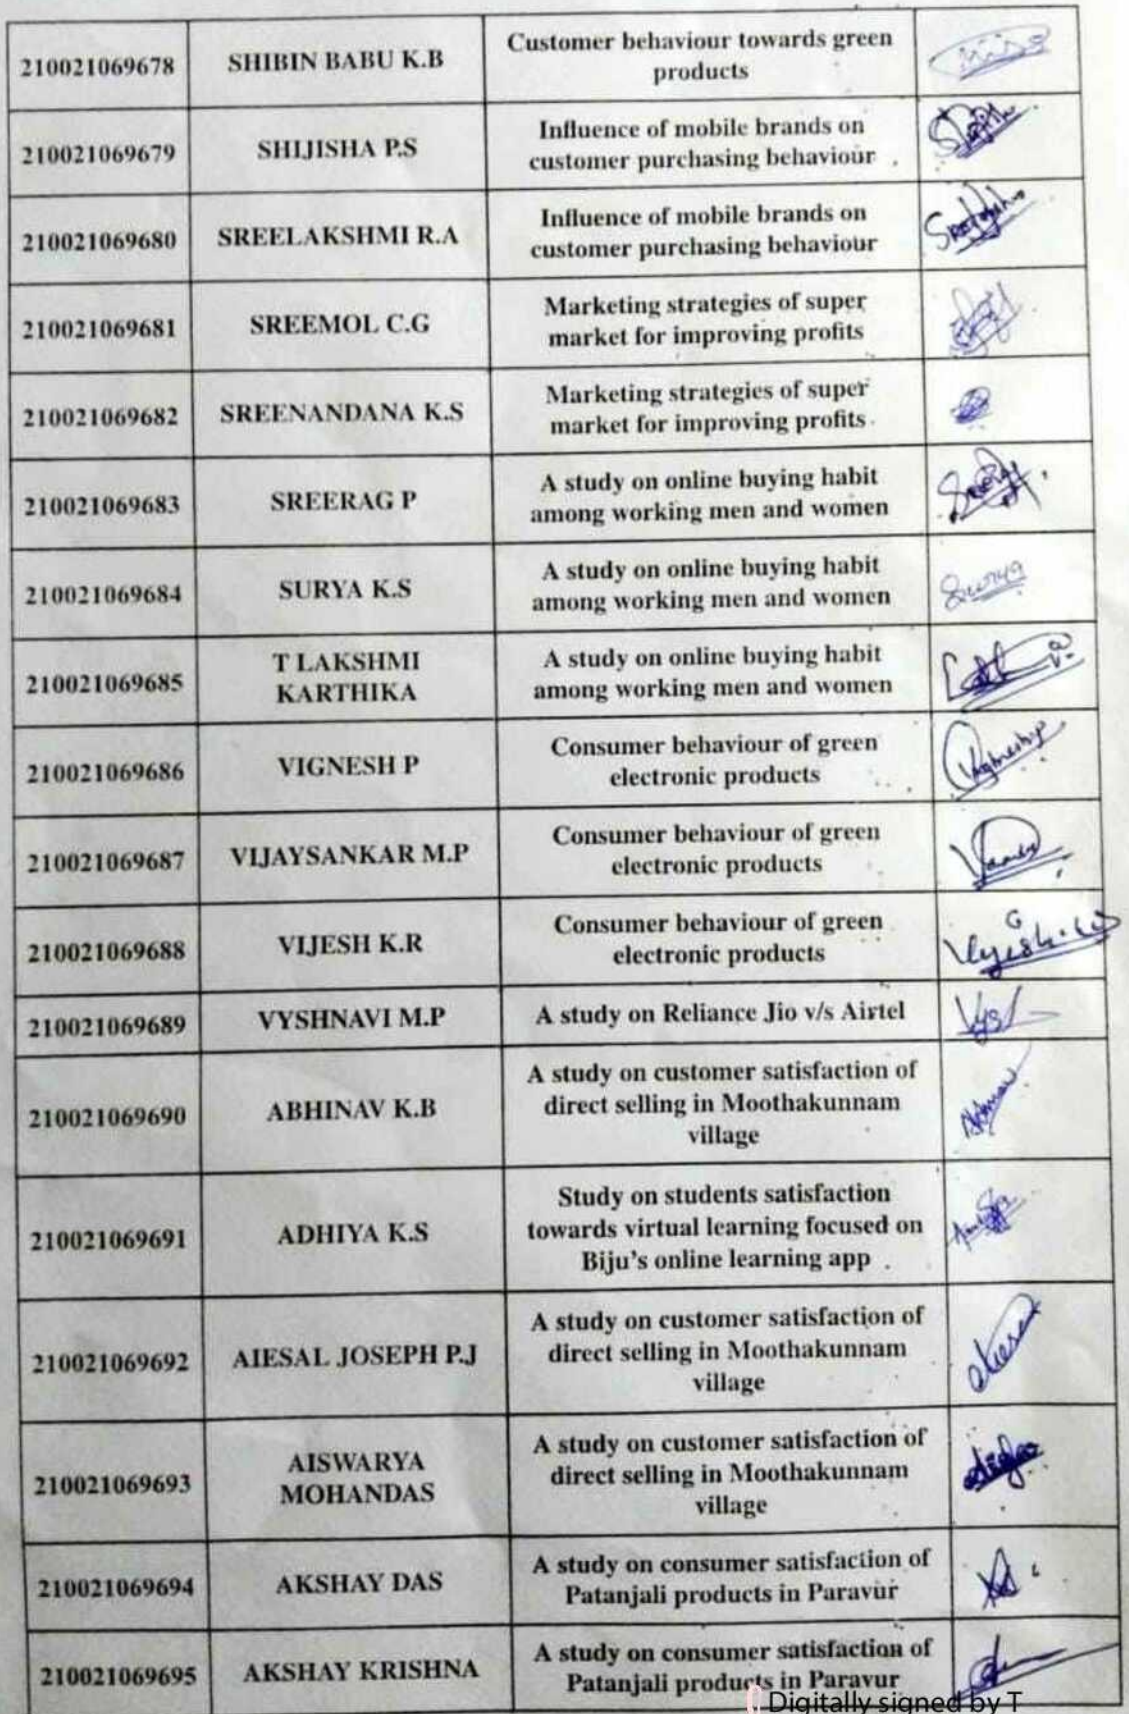 210021069678 SHIBIN BABU K.B Customer behaviour towards green
products
210021069679 SHIJISHA P.S Influence of mobile brands on
customer purchasing behaviour
210021069680 SREELAKSHMI R.A Influence of mobile brands on
customer purchasing behaviour
210021069681 SREEMOL C.G Marketing strategies of super
market for improving profits
210021069682 SREENANDANA K.S Marketing strategies of super
market for improving profits
210021069683 SREERAG P A study on online buying habit
among working men and women
210021069684 SURYA K.S A study on online buying habit
among working men and women
Surya
210021069685 T LAKSHMI
KARTHIKA
A study on online buying habit
among working men and women
210021069686 VIGNESH P Consumer behaviour of green
electronic products
210021069687 VIJAYSANKAR M.P Consumer behaviour of green
electronic products
210021069688 VIJESH K.R Consumer behaviour of green
electronic products
210021069689 VYSHNAVI M.P A study on Reliance Jio v/s Airtel
210021069690 ABHINAV K.B A study on customer satisfaction of
direct selling in Moothakunnam
village
210021069691 ADHIYA K.S Study on students satisfaction
towards virtual learning focused on
Biju's online learning app .
210021069692 AIESAL JOSEPH P.J A study on customer satisfaction of
direct selling in Moothakunnam
village
210021069693 AISWARYA
MOHANDAS
A study on customer satisfaction of
direct selling in Moothakunnam
village
210021069694 AKSHAY DAS A study on consumer satisfaction of
Patanjali products in Paravur
210021069695 AKSHAY KRISHNA A study on consumer satisfaction of
Patanjali products in Paravur
Digitally signed by T